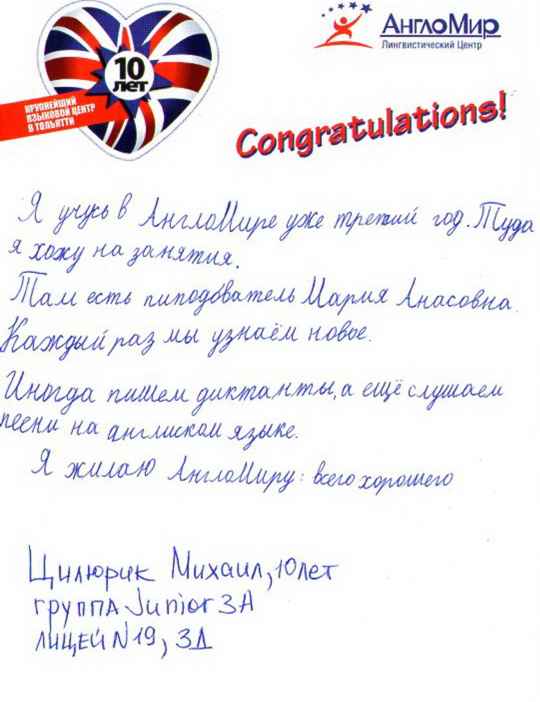 10
лет
КРУПНЕЙШИЙ
ЯЗЫКОВОЙ ЦЕНТР
В ТОЛЬЯТТИ
АнглоМир
Лингвистический Центр
Congratulations!
Я учусь в АнглоМире уже третий год. Туда
я хожу на занятия.
Там есть пиподователь Мария Анасовна.
Каждый раз мы узнаём новое.
Иногда пишем диктанты, а ещё слушаем
песни на англиском языке.
Я жилаю АнглоМиру: всего хорошего
Цилюрик Михаил, 10 лет
группа Junior 3А
лицей N19, 3Д